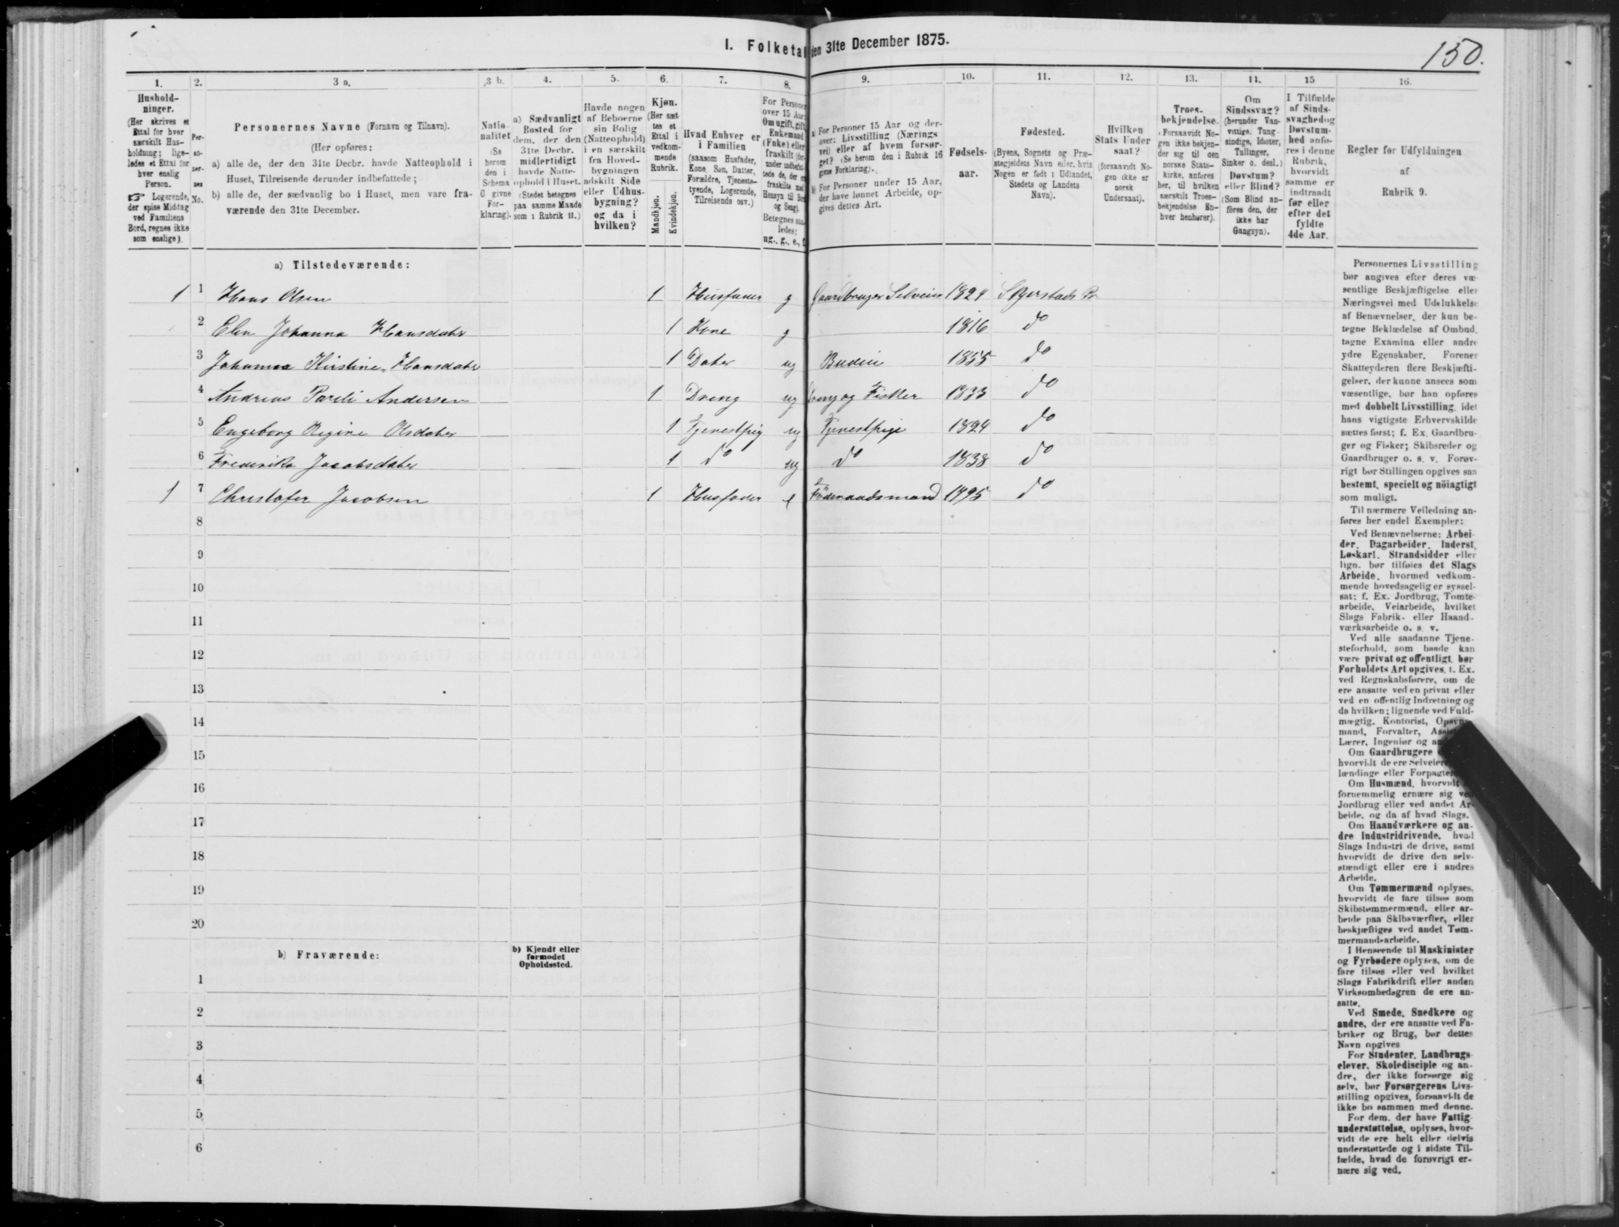 I. Folketal den 31te December 1875.
150.
1.
2.
3 a.
3 b.
4.
5.
6.
7.
8.
9.
10.
11.
12.
13.
14.
15
16.
Hushold-
ninger.
(Her skrives et
Ettal for hver
særskilt Hus-
holdning; lige-
ledes et Ettal for
hver enslig
Person.
☞ Logerende,
der spise Middag
ved Familiens
Bord, regnes ikke
som enslige).
Per-
so-
ner-
nes
No.
Personernes Navne (Fornavn og Tilnavn).
(Her opføres:
a) alle de, der den 31te Decbr. havde Natteophold i
Huset, Tilreisende derunder indbefattede;
b) alle de, der sædvanlig bo i Huset, men vare fra-
værende den 31te December.
Natio-
nalitet
(Se
herom
den i
Schema
O givne
For-
klaring).
a) Sædvanligt
Bosted for
dem, der den
31te Decbr.
midlertidigt
havde Natte-
ophold i Huset.
(Stedet betegnes
paa samme Maade
som i Rubrik 11.)
Havde nogen
af Beboerne
sin Bolig
(Natteophold)
i en særskilt
fra Hoved-
bygningen
adskilt Side
eller Udhus-
bygning?
og da i
hvilken?
Kjøn.
(Her sæt-
tes et
Ettal i
vedkom-
mende
Rubrik.
Mandkjøn.
Kvindekjøn.
Hvad Enhver er
i Familien
(saasom Husfader,
Kone, Søn, Datter,
Forældre, Tjeneste-
tyende, Logerende,
Tilreisende osv.)
For Personer
over 15 Aar:
Om ugift, gift,
Enkemand
(Enke) eller
fraskilt
ug., g., e., f.
a) For Personer 15 Aar og der-
over: Livsstilling (Nærings-
vei) eller af hvem forsør-
get? (Se herom den i Rubrik 16
givne Forklaring).
b) For Personer under 15 Aar,
der have lønnet Arbeide, op-
gives dettes Art.
Fødsels-
aar.
Fødested.
(Byens, Sognets og Præ-
stegjeldets Navn eller, hvis
Nogen er født i Udlandet,
Stedets og Landets
Navn).
Hvilken
Stats Under
saat?
(forsaavidt No-
gen ikke er
norsk
Undersaat).
Troes-
bekjendelse.
(Forsaavidt No-
gen ikke bekjen-
der sig til den
norske Stats-
kirke, anføres
her, til hvilken
særskilt Troes-
bekjendelse En-
hver henhører).
Om
Sindssvag?
(herunder Van-
vittige, Tung-
sindige, Idioter,
Tullinger,
Sinker o. desl.)
Døvstum?
eller Blind?
(Som Blind an-
føres den, der
ikke har
Gangsyn).
I Tilfælde
af Sinds-
svaghed og
Døvstum-
hed anfø-
res i denne
Rubrik,
hvorvidt
samme er
indtraadt
før eller
efter det
fyldte
4de Aar.
Regler for Udfyldningen
af
Rubrik 9.
a) Tilstedeværende:
1 1 Hans Olsen 1 Husfader g Gaardbruger Selveier 1824 Skjerstads Pr
2 Elen Johanna Hansdater 1 Kone g 1816 do
3 Johanna Kirstine Hansdater 1 Dater ug Budeie 1855 do
4 Andrias Andersen 1 Dreng ug Fisker 1833 do
5 Engeborg Regine Olsdater 1 Tjenestpig ug Tjenestpige 1824 do
6 Frederika Jacobsdater 1 do ug do 1838 do
1 7 Christofer Jacobsen 1 Husfader e Føderaadsmand 1795 do
8
9
10
11
12
13
14
15
16
17
18
19
20
b) Fraværende:
b) Kjendt eller
formodet
Opholdssted.
1
2
3
4
5
6
Personernes Livsstilling
bør angives efter deres væ-
sentlige Beskjæftigelse eller
Næringsvei med Udelukkelse
af Benævnelser, der kun be-
tegne Beklædelse af Ombud,
tagne Examina eller andre
ydre Egenskaber. Forener
Skatteyderen flere Beskjæfti-
gelser, der kunne ansees som
væsentlige, bør han opføres
med dobbelt Livsstilling, idet
hans vigtigste Erhvervskilde
sættes først; f. Ex. Gaardbru-
ger og Fisker; Skibsreder og
Gaardbruger o. s. v. Forøv-
rigt bør Stillingen opgives saa
bestemt, specielt og nöiagtigt
som muligt.
Til nærmere Veiledning an-
føres her endel Exempler:
Ved Benævnelserne: Arbei-
der, Dagarbeider, Inderst,
Løskarl, Strandsidder eller
lign. bør tilføies det Slags
Arbeide, hvormed vedkom-
mende hovedsagelig er syssel-
sat; f. Ex. Jordbrug, Tomte-
arbeide, Veiarbeide, hvilket
Slags Fabrik- eller Haand-
værksarbeide o. s. v.
Ved alle saadanne Tjene-
steforhold, som baade kan
være privat og offentligt, bør
Forholdets Art opgives, f. Ex.
ved Regnskabsførere, om de
ere ansatte ved en privat eller
ved en offentlig Indretning og
da hvilken; lignende ved Fuld-
mægtig, Kontorist,
mand, Forvalter,
Lærer, Ingeniør og
Om Gaardbrugere
hvorvidt de ere Selveiere,
lændinge eller Forpagtere
Om Husmænd, hvorvidt
fornemmelig ernære sig ved
Jordbrug eller ved andet Ar-
beide, og da af hvad Slags.
Om Haandværkere og an-
dre Industridrivende, hvad
Slags Industri de drive, samt
hvorvidt de drive den selv-
stændigt eller ere i andres
Arbeide.
Om Tømmermænd oplyses,
hvorvidt de fare tilsøs som
Skibstømmermænd, eller ar-
beide paa Skibsværfter, eller
beskjæftiges ved andet Tøm-
mermandsarbeide.
I Henseende til Maskinister
og Fyrbødere oplyses, om de
fare tilsøs eller ved hvilket
Slags Fabrikdrift eller anden
Virksomhedsgren de ere an-
satte.
Ved Smede, Snedkere og
andre, der ere ansatte ved Fa-
briker og Brug, bør dettes
Navn opgives
For Studenter, Landbrugs-
elever, Skoledisciple og an-
dre, der ikke forsørge sig
selv, bør Forsørgerens Livs-
stilling opgives, forsaavidt de
ikke bo sammen med denne.
For dem, der have Fattig-
understøttelse, oplyses, hvor-
vidt de ere helt eller delvis
understøttede og i sidste Til-
fælde, hvad de forøvrigt er-
nære sig ved.